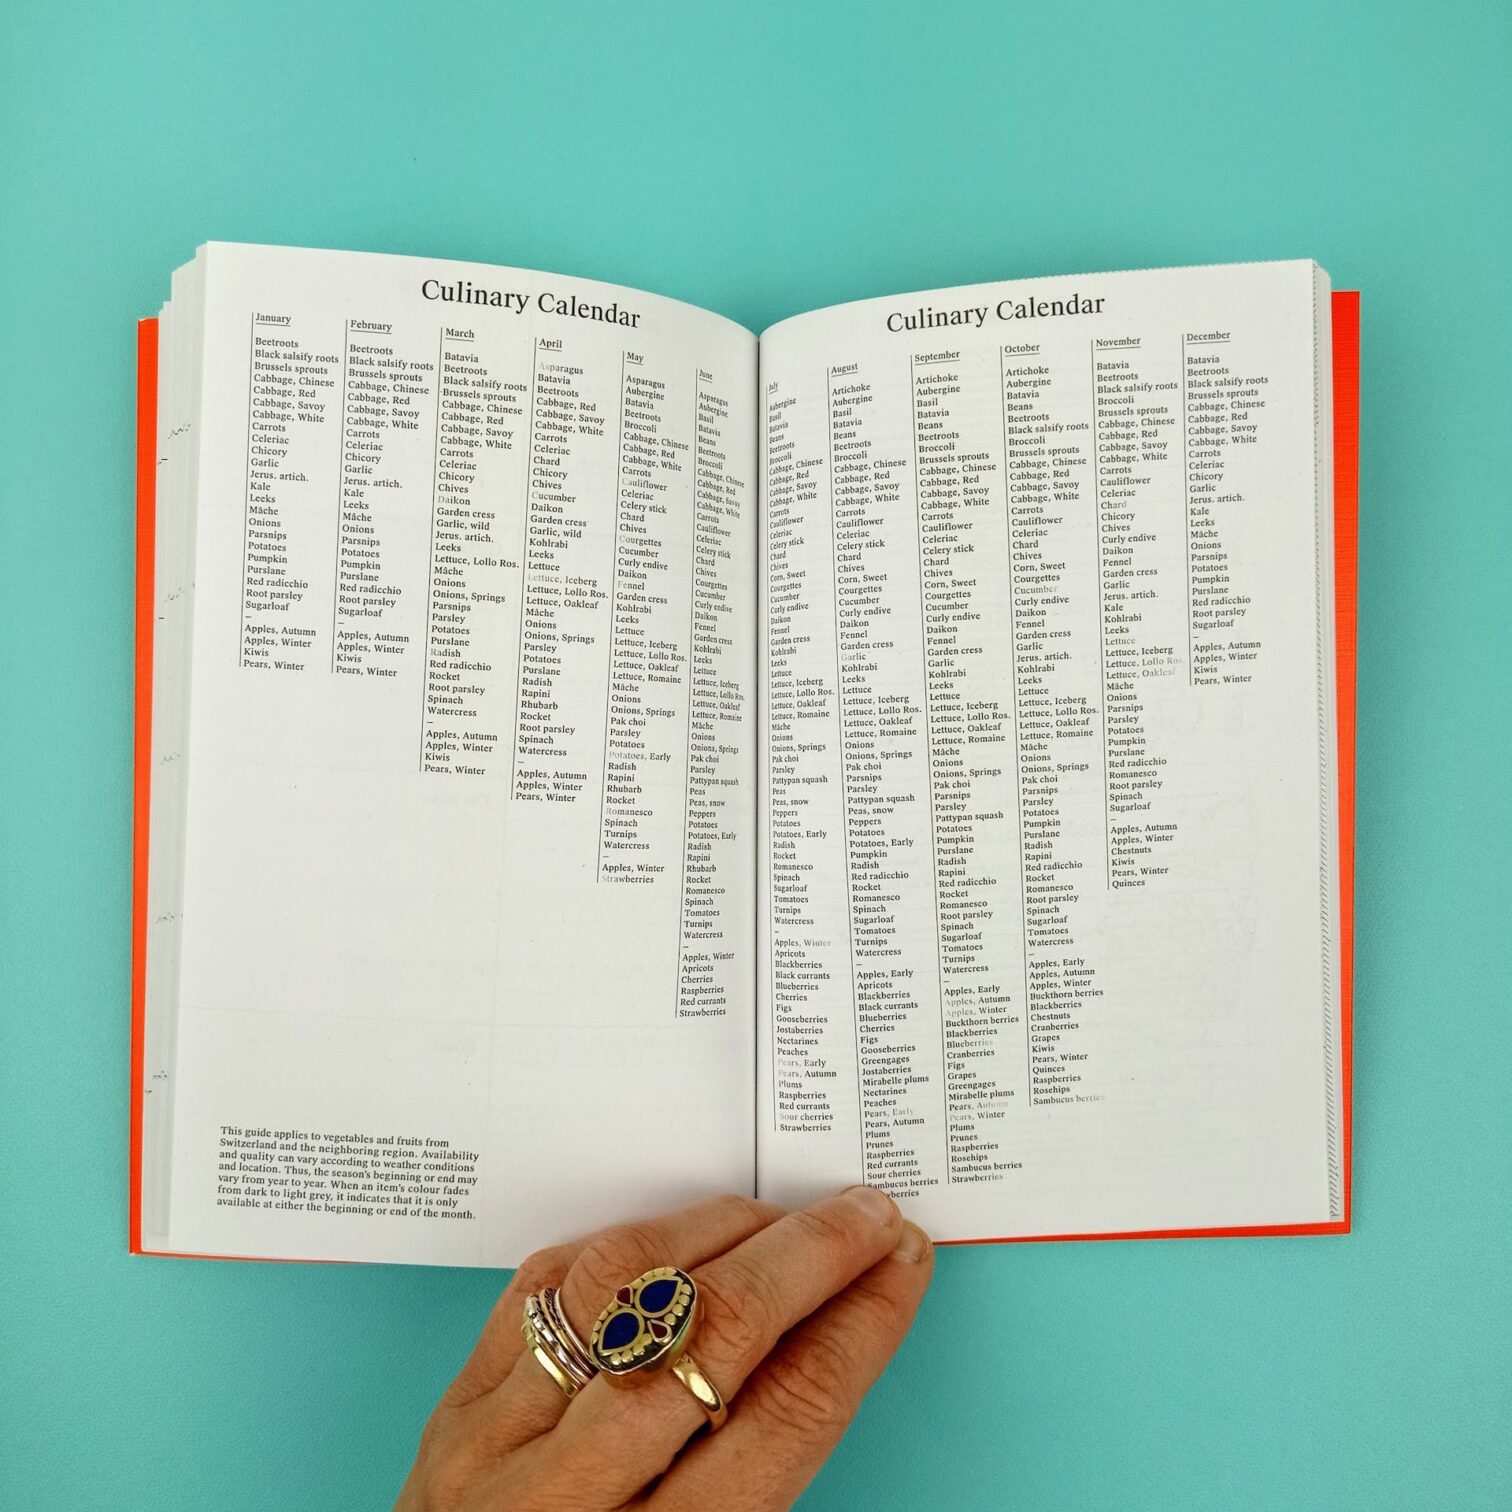 Culinary Calendar
January
Beetroots
Black salsify roots
Brussels sprouts
Cabbage, Chinese
Cabbage, Red
Cabbage, Savoy
Cabbage, White
Carrots
Celeriac
Chicory
Garlic
Jerus. artich.
Kale
Leeks
Mâche
Onions
Parsnips
Potatoes
Pumpkin
Purslane
Red radicchio
Root parsley
Sugarloaf
–
Apples, Autumn
Apples, Winter
Kiwis
Pears, Winter
February
Beetroots
Black salsify roots
Brussels sprouts
Cabbage, Chinese
Cabbage, Red
Cabbage, Savoy
Cabbage, White
Carrots
Celeriac
Chicory
Garlic
Jerus. artich.
Kale
Leeks
Mâche
Onions
Parsnips
Potatoes
Pumpkin
Purslane
Red radicchio
Root parsley
Sugarloaf
–
Apples, Autumn
Apples, Winter
Kiwis
Pears, Winter
March
Batavia
Beetroots
Black salsify roots
Brussels sprouts
Cabbage, Chinese
Cabbage, Red
Cabbage, Savoy
Cabbage, White
Carrots
Celeriac
Chicory
Chives
Daikon
Garden cress
Garlic, wild
Jerus. artich.
Leeks
Lettuce, Lollo Ros.
Mâche
Onions
Onions, Springs
Parsnips
Parsley
Potatoes
Purslane
Radish
Red radicchio
Rocket
Root parsley
Spinach
Watercress
–
Apples, Autumn
Apples, Winter
Kiwis
Pears, Winter
April
Asparagus
Batavia
Beetroots
Cabbage, Red
Cabbage, Savoy
Cabbage, White
Carrots
Celeriac
Chard
Chicory
Chives
Cucumber
Daikon
Garden cress
Garlic, wild
Kohlrabi
Leeks
Lettuce
Lettuce, Iceberg
Lettuce, Lollo Ros.
Lettuce, Oakleaf
Mâche
Onions
Onions, Springs
Parsley
Potatoes
Purslane
Radish
Rapini
Rhubarb
Rocket
Root parsley
Spinach
Watercress
–
Apples, Autumn
Apples, Winter
Pears, Winter
May
Asparagus
Aubergine
Batavia
Beetroots
Broccoli
Cabbage, Chinese
Cabbage, Red
Cabbage, White
Carrots
Cauliflower
Celeriac
Celery stick
Chard
Chives
Courgettes
Cucumber
Curly endive
Daikon
Fennel
Garden cress
Kohlrabi
Leeks
Lettuce
Lettuce, Iceberg
Lettuce, Lollo Ros.
Lettuce, Oakleaf
Lettuce, Romaine
Mâche
Onions
Onions, Springs
Pak choi
Parsley
Potatoes
Potatoes, Early
Radish
Rapini
Rhubarb
Rocket
Romanesco
Spinach
Turnips
Watercress
–
Apples, Winter
Strawberries
June
Asparagus
Aubergine
Basil
Batavia
Beans
Beetroots
Broccoli
Cabbage, Chinese
Cabbage, Red
Cabbage, Savoy
Cabbage, White
Carrots
Cauliflower
Celeriac
Celery stick
Chard
Chives
Courgettes
Cucumber
Curly endive
Daikon
Fennel
Garden cress
Kohlrabi
Leeks
Lettuce
Lettuce, Iceberg
Lettuce, Lollo Ros.
Lettuce, Oakleaf
Lettuce, Romaine
Mâche
Onions
Onions, Springs
Pak choi
Parsley
Pattypan squash
Peas
Peas, snow
Peppers
Potatoes
Potatoes, Early
Radish
Rapini
Rhubarb
Rocket
Romanesco
Spinach
Tomatoes
Turnips
Watercress
–
Apples, Winter
Apricots
Cherries
Raspberries
Red currants
Strawberries
This guide applies to vegetables and fruits from
Switzerland and the neighboring region. Availability
and quality can vary according to weather conditions
and location. Thus, the season's beginning or end may
vary from year to year. When an item's colour fades
from dark to light grey, it indicates that it is only
available at either the beginning or end of the month.
Culinary Calendar
July
Aubergine
Basil
Batavia
Beans
Beetroots
Broccoli
Cabbage, Chinese
Cabbage, Red
Cabbage, Savoy
Cabbage, White
Carrots
Cauliflower
Celeriac
Celery stick
Chard
Chives
Corn, Sweet
Courgettes
Cucumber
Curly endive
Daikon
Fennel
Garden cress
Kohlrabi
Leeks
Lettuce
Lettuce, Iceberg
Lettuce, Lollo Ros.
Lettuce, Oakleaf
Lettuce, Romaine
Mâche
Onions
Onions, Springs
Pak choi
Parsley
Pattypan squash
Peas
Peas, snow
Peppers
Potatoes
Potatoes, Early
Radish
Rocket
Romanesco
Spinach
Sugarloaf
Tomatoes
Turnips
Watercress
–
Apples, Winter
Apricots
Blackberries
Black currants
Blueberries
Cherries
Figs
Gooseberries
Jostaberries
Nectarines
Peaches
Pears, Early
Pears, Autumn
Plums
Raspberries
Red currants
Sour cherries
Strawberries
August
Artichoke
Aubergine
Basil
Batavia
Beans
Beetroots
Broccoli
Cabbage, Chinese
Cabbage, Red
Cabbage, Savoy
Cabbage, White
Carrots
Cauliflower
Celeriac
Celery stick
Chard
Chives
Corn, Sweet
Courgettes
Cucumber
Curly endive
Daikon
Fennel
Garden cress
Garlic
Kohlrabi
Leeks
Lettuce
Lettuce, Iceberg
Lettuce, Lollo Ros.
Lettuce, Oakleaf
Lettuce, Romaine
Onions
Onions, Springs
Pak choi
Parsnips
Parsley
Pattypan squash
Peas, snow
Peppers
Potatoes
Potatoes, Early
Pumpkin
Radish
Red radicchio
Rocket
Romanesco
Spinach
Sugarloaf
Tomatoes
Turnips
Watercress
–
Apples, Early
Apricots
Blackberries
Black currants
Blueberries
Cherries
Figs
Gooseberries
Greengages
Jostaberries
Mirabelle plums
Nectarines
Peaches
Pears, Early
Pears, Autumn
Plums
Prunes
Raspberries
Red currants
Sour cherries
Sambucus berries
wberries
September
Artichoke
Aubergine
Basil
Batavia
Beans
Beetroots
Broccoli
Brussels sprouts
Cabbage, Chinese
Cabbage, Red
Cabbage, Savoy
Cabbage, White
Carrots
Cauliflower
Celeriac
Celery stick
Chard
Chives
Corn, Sweet
Courgettes
Cucumber
Curly endive
Daikon
Fennel
Garden cress
Garlic
Kohlrabi
Leeks
Lettuce
Lettuce, Iceberg
Lettuce, Lollo Ros.
Lettuce, Oakleaf
Lettuce, Romaine
Mâche
Onions
Onions, Springs
Pak choi
Parsnips
Parsley
Pattypan squash
Potatoes
Pumpkin
Purslane
Radish
Rapini
Red radicchio
Rocket
Romanesco
Root parsley
Spinach
Sugarloaf
Tomatoes
Turnips
Watercress
–
Apples, Early
Apples, Autumn
Apples, Winter
Buckthorn berries
Blackberries
Blueberries
Cranberries
Figs
Grapes
Greengages
Mirabelle plums
Pears, Autumn
Pears, Winter
Plums
Prunes
Raspberries
Rosehips
Sambucus berries
Strawberries
October
Artichoke
Aubergine
Batavia
Beans
Beetroots
Black salsify roots
Broccoli
Brussels sprouts
Cabbage, Chinese
Cabbage, Red
Cabbage, Savoy
Cabbage, White
Carrots
Cauliflower
Celeriac
Chard
Chives
Courgettes
Cucumber
Curly endive
Daikon
Fennel
Garden cress
Garlic
Jerus. artich.
Kohlrabi
Leeks
Lettuce
Lettuce, Iceberg
Lettuce, Lollo Ros.
Lettuce, Oakleaf
Lettuce, Romaine
Mâche
Onions
Onions, Springs
Pak choi
Parsnips
Parsley
Potatoes
Pumpkin
Purslane
Radish
Rapini
Red radicchio
Rocket
Romanesco
Root parsley
Spinach
Sugarloaf
Tomatoes
Watercress
–
Apples, Early
Apples, Autumn
Apples, Winter
Buckthorn berries
Blackberries
Chestnuts
Cranberries
Grapes
Kiwis
Pears, Winter
Quinces
Raspberries
Rosehips
Sambucus berries
November
Batavia
Beetroots
Black salsify roots
Broccoli
Brussels sprouts
Cabbage, Chinese
Cabbage, Red
Cabbage, Savoy
Cabbage, White
Carrots
Cauliflower
Celeriac
Chard
Chicory
Chives
Curly endive
Daikon
Fennel
Garden cress
Garlic
Jerus. artich.
Kale
Kohlrabi
Leeks
Lettuce
Lettuce, Iceberg
Lettuce, Lollo Ros.
Lettuce, Oakleaf
Mâche
Onions
Parsnips
Parsley
Potatoes
Pumpkin
Purslane
Red radicchio
Romanesco
Root parsley
Spinach
Sugarloaf
–
Apples, Autumn
Apples, Winter
Chestnuts
Kiwis
Pears, Winter
Quinces
December
Batavia
Beetroots
Black salsify roots
Brussels sprouts
Cabbage, Chinese
Cabbage, Red
Cabbage, Savoy
Cabbage, White
Carrots
Celeriac
Chicory
Garlic
Jerus. artich.
Kale
Leeks
Mâche
Onions
Parsnips
Potatoes
Pumpkin
Purslane
Red radicchio
Root parsley
Sugarloaf
–
Apples, Autumn
Apples, Winter
Kiwis
Pears, Winter